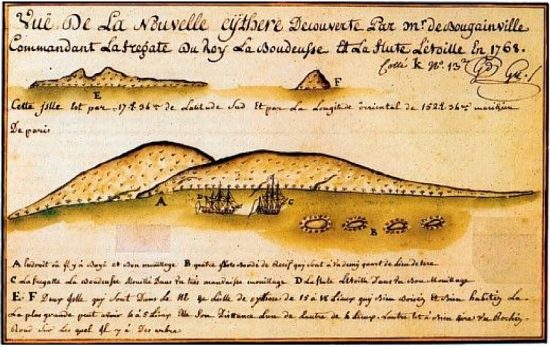 Vuë De La Nouvelle Cythere Decouverte Par mr. de Bougainville
Commandant La fregate du Roy La Boudeusse Et La flute Letoille En 1768.
Cotté k No. 13
E
F
Cette Isle Est par 17d 36m de Latitude Sud Et par La Longitude orriental de 152d 36m meridien
De paris
A
D
C
B
A lendroit où il y a Bon mouillage B quatre Bordé de Recif qui sont à un demy quart de Lieu de terre
C La fregatte La Boudeusse mouillé Dans un tres mauvaisse mouillage D La flute Letoille Dans un Bon mouillage
E. F Deux Isles qui sont Dans Le de Lisle de cythere de 15 a 16 Lieux qui Bien Boisez et Bien habitez La
La plus grande peut avoir 4 a 5 Lieux Son Distance Lune de Lautre de Lieux Lautre et
Rond Sur Les quel Il y A Des arbre